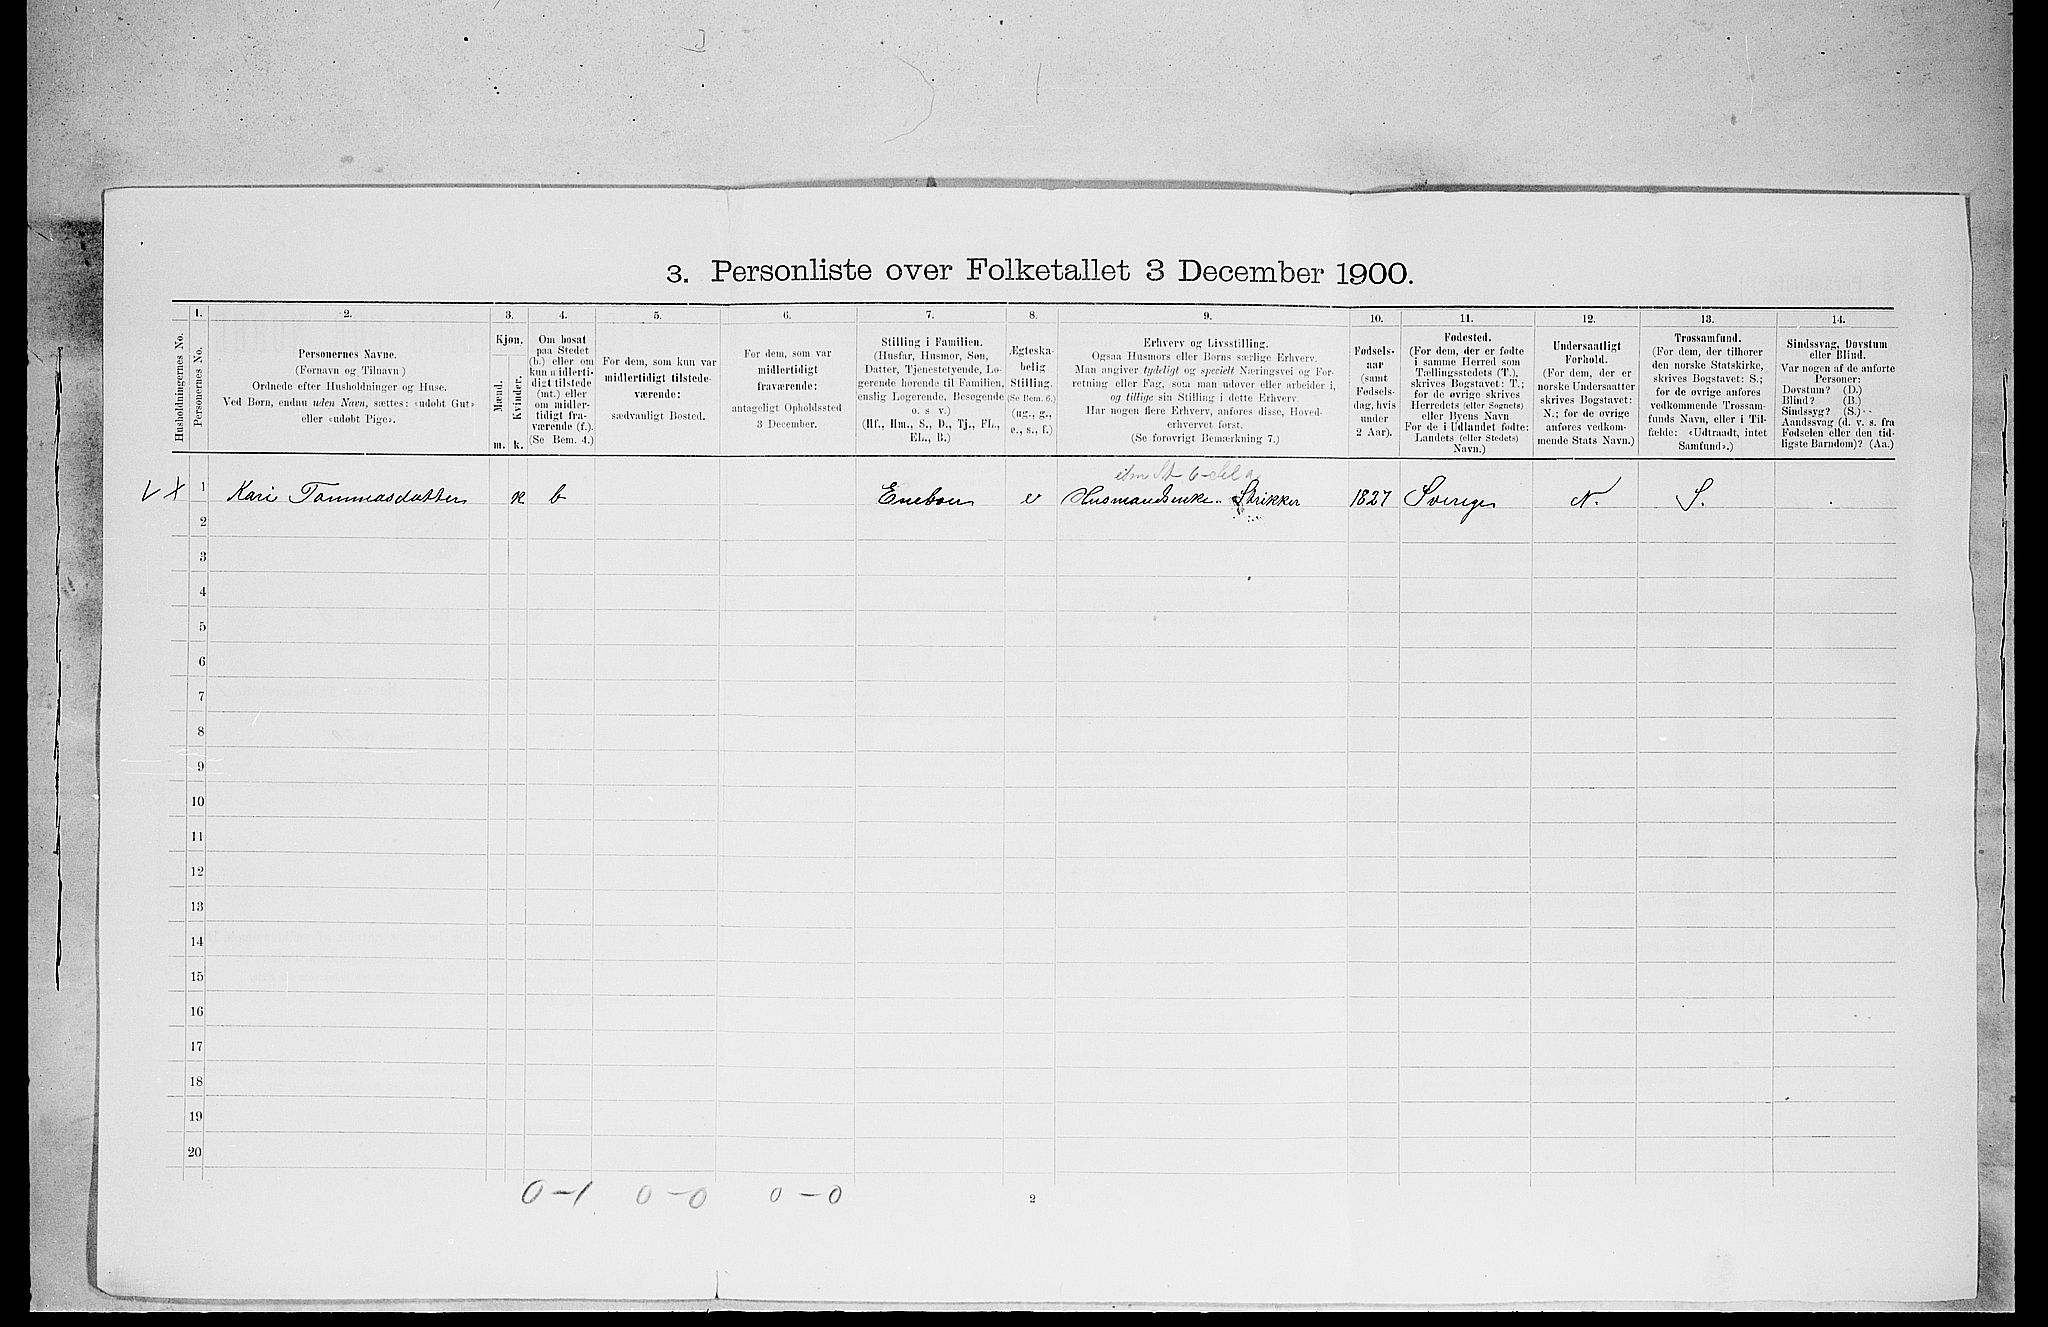 3. Personliste over Folketallet 3 December 1900.
Husholdningernes No.
1.
Personernes No.
2.
Personernes Navne.
(Fornavn og Tilnavn.)
Ordnede efter Husholdninger og Huse.
Ved Børn, endnu uden Navn, sættes: «udøbt Gut»
eller «udøbt Pige».
3.
Kjøn.
Mænd.
Kvinder.
m. k.
4.
Om bosat
paa Stedet
(b.) eller om
kun midlerti-
digt tilstede
(mt.) eller
om midler-
tidigt fra-
værende (f.).
(Se Bem. 4.)
5.
For dem, som kun var
midlertidigt tilstede-
værende:
sædvanligt Bosted.
6.
For dem, som var
midlertidigt
fraværende:
antageligt Opholdssted
3 December.
7.
Stilling i Familien.
(Husfar, Husmor, Søn,
Datter, Tjenestetyende, Lo-
gerende hørende til Familien,
enslig Logerende, Besøgende
o. s. v.)
(Hf., Hm., S., D., Tj., FL.,
EL., B.)
8.
Ægteska-
belig
Stilling.
(Se Bem. 6.)
(ug., g.,
e., s., f.)
9.
Erhverv og Livsstilling.
Ogsaa Husmors eller Børns særlige Erhverv.
Man angiver tydeligt og specielt Næringsvei og For-
retning eller Fag, som man udøver eller arbeider i,
og tillige sin Stilling i dette Erhverv.
Har nogen flere Erhverv, anføres disse, Hoved-
erhvervet først.
(Se forøvrigt Bemærkning 7.)
10.
Fødsels-
aar
(samt
Fødsels-
dag, hvis
under
2 Aar).
11.
Fødested.
(For dem, der er fødte
i samme Herred som
Tællingsstedets (T.),
skrives Bogstavet: T.;
for de øvrige skrives
Herredets (eller Sognets)
eller Byens Navn.
For de i Udlandet fødte:
Landets (eller Stedets)
Navn.)
12.
Undersaatligt
Forhold.
(For dem, der er
norske Undersaatter
skrives Bogstavet:
N.; for de øvrige
anføres vedkom-
mende Stats Navn.)
13.
Trossamfund.
(For dem, der tilhører
den norske Statskirke,
skrives Bogstavet: S.;
for de øvrige anføres
vedkommende Trossam-
funds Navn, eller i Til-
fælde: «Udtraadt, intet
Samfund».)
14.
Sindssvag, Døvstum
eller Blind.
Var nogen af de anførte
Personer:
Døvstum? (D.)
Blind? (B.)
Sindssyg? (S.)
Aandssvag (d. v. s. fra
Fødselen eller den tid-
ligste Barndom)? (Aa.)
1 Kari Tommasdatter k b Eneboer e Husmandsenke. Strikker 1827 Sverige N. S.
2
3
4
5
6
7
8
9
10
11
12
13
14
15
16
17
18
19
20
0-1 0-0 0-0
2